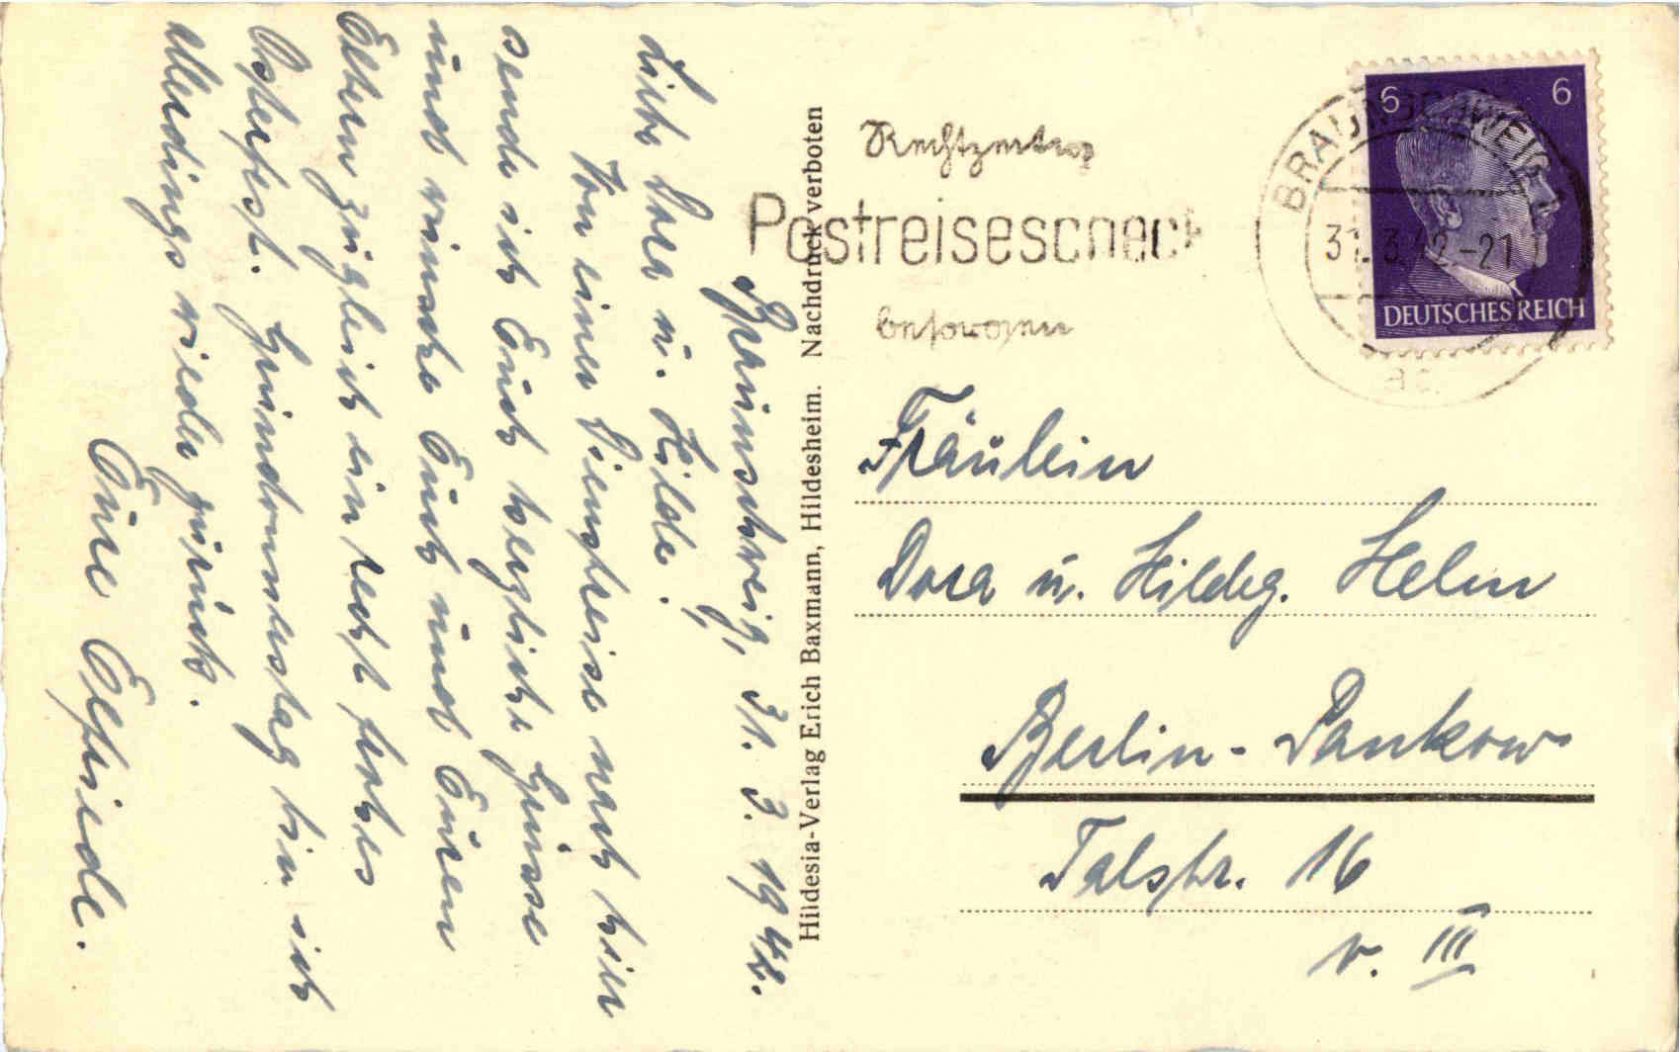 Braunschweig, 31. 3. 1942.
Liebe Dora u. Hilde!
Von einer Dienstreise nach hier
sende ich Euch herzliche Grüsse
und wünsche Euch und Euren
Eltern zugleich ein recht frohes
Osterfest. Gründonnerstag bin ich
allerdings wieder zurück.
Eure Elfriede.
Hildesia-Verlag Erich Baxmann, Hildesheim. Nachdruck verboten
Rechtzeitig
Postreisescheck
besorgen
BRAUNSCHWEIG
31.3.42.-21
6 6
DEUTSCHES REICH
Fräulein
Dora u. Hildeg. Helm
Berlin-Pankow
Talstr. 16
v. III